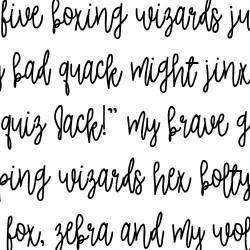 five boxing wizards ju
bad quack might jinx
quiz Jack!" my brave g
ping wizards hex bolty
fox, zebra and my wo